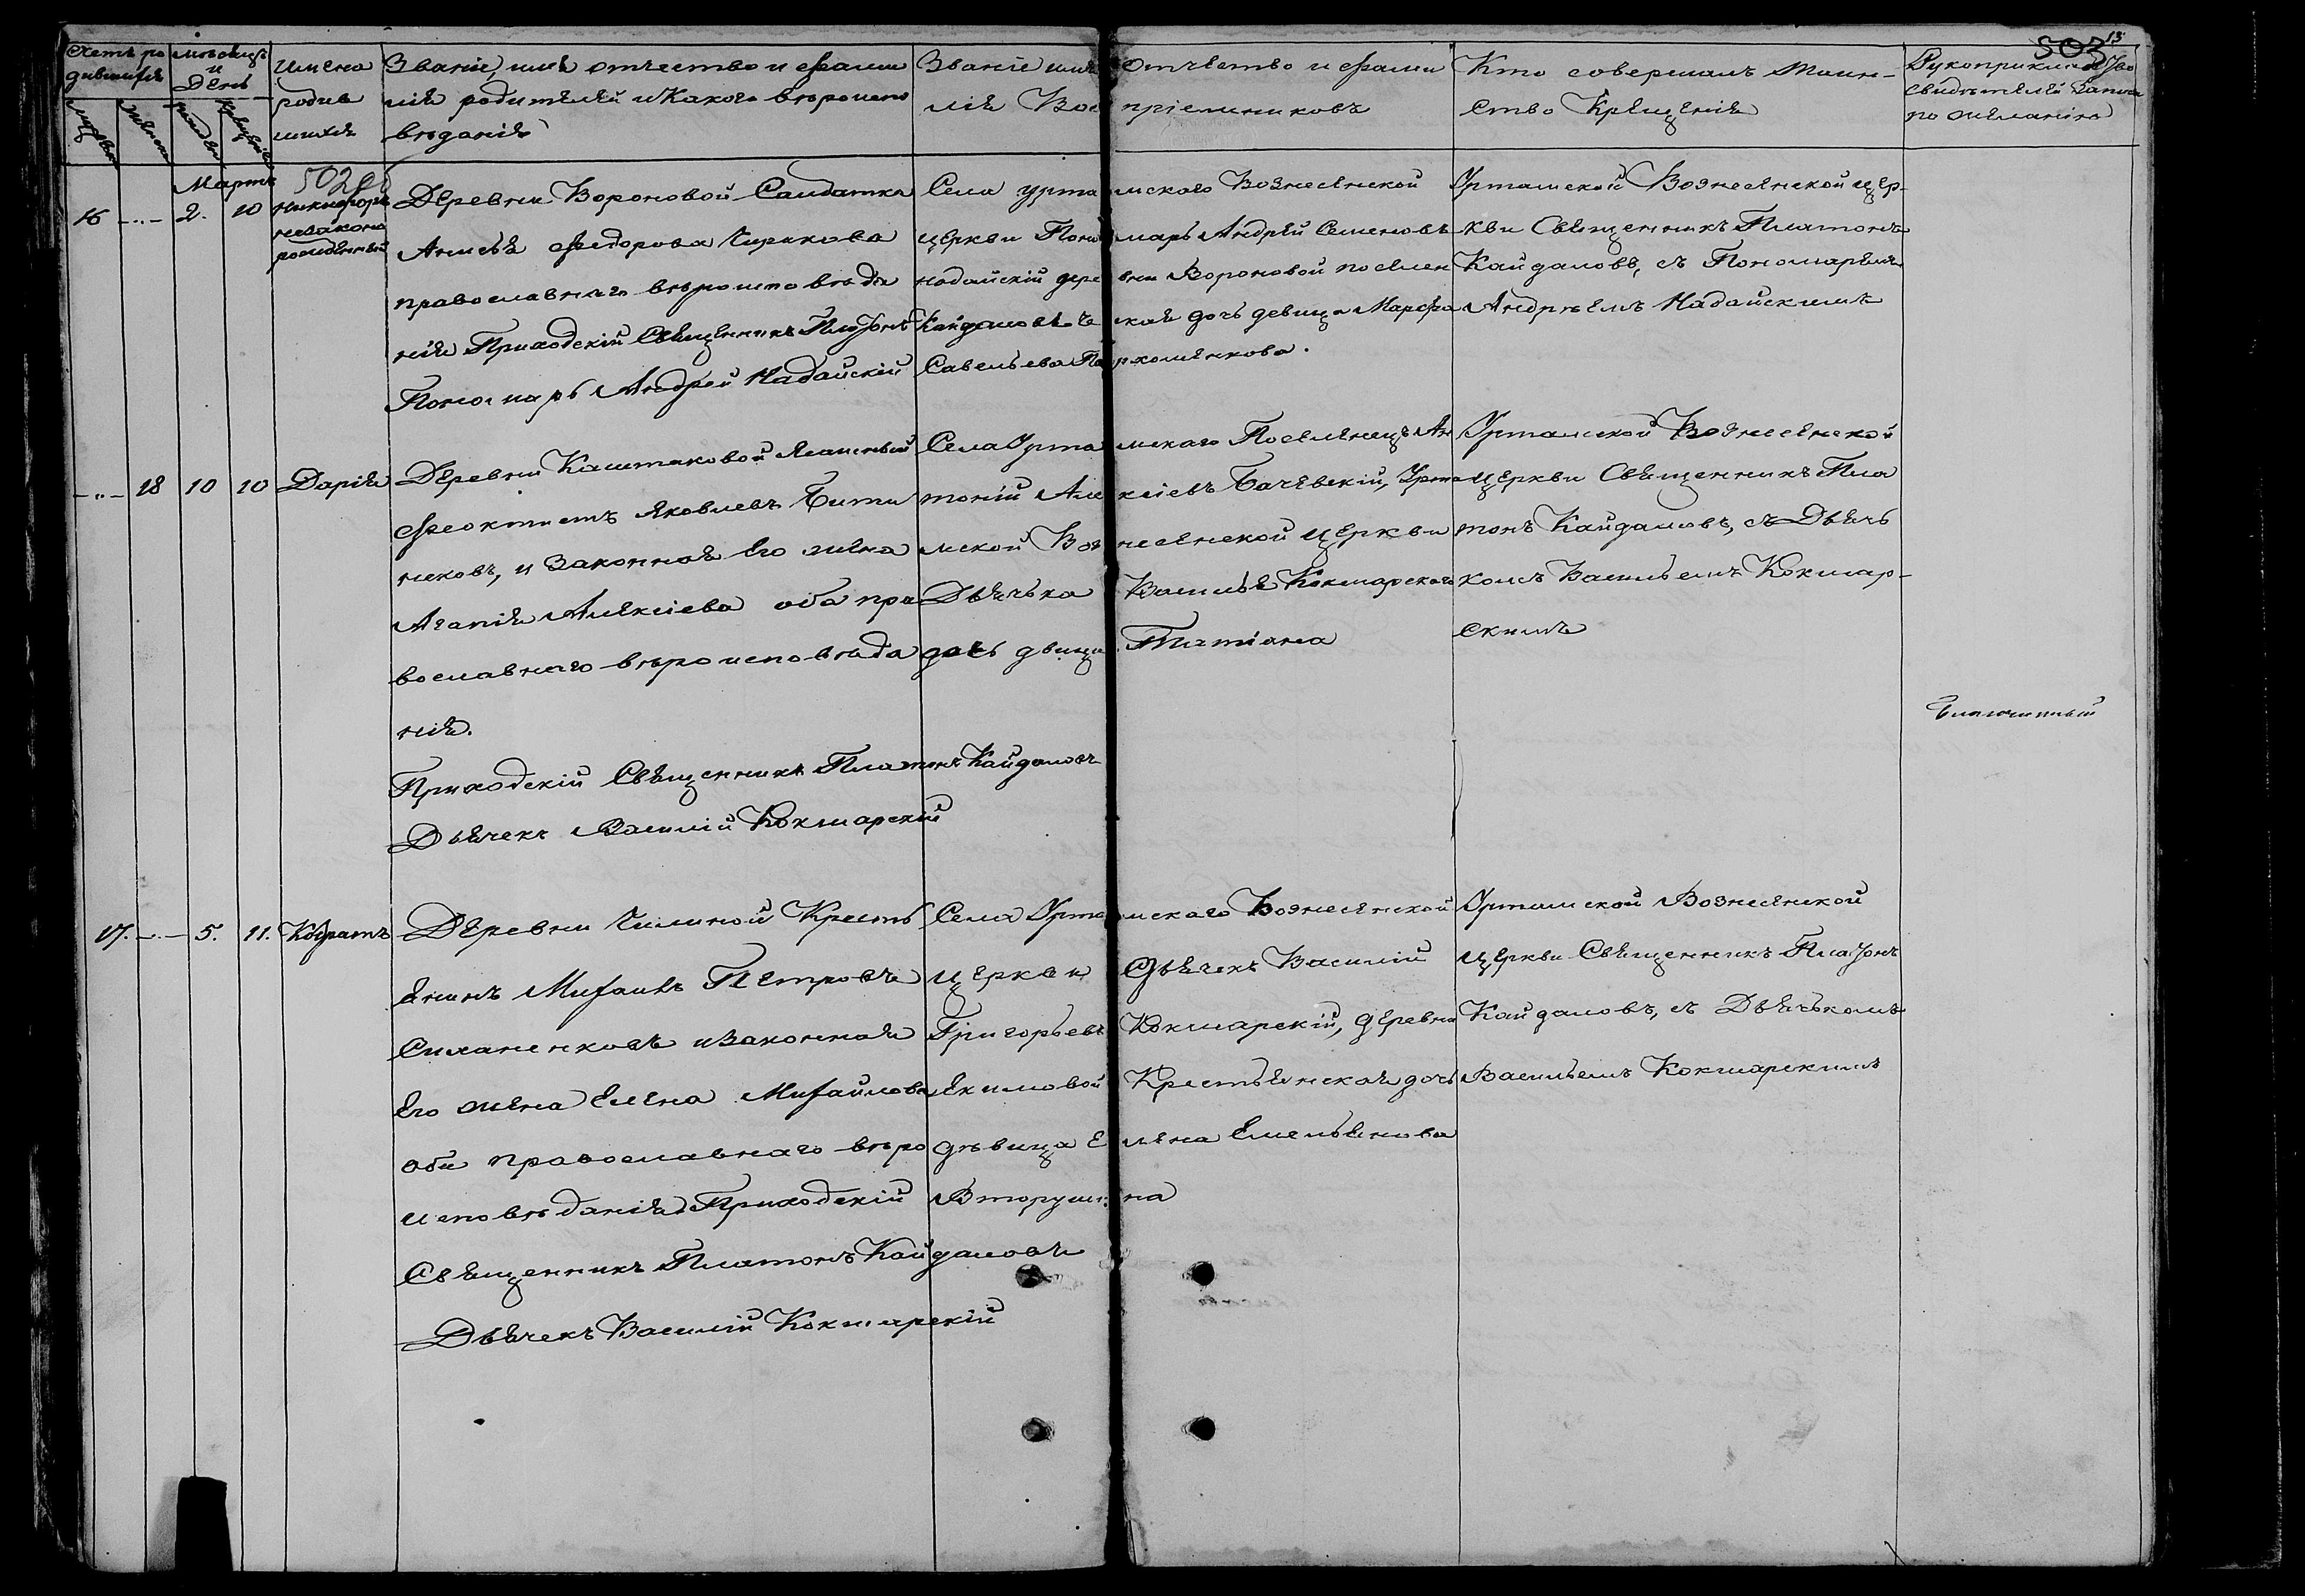 503
13
Счетъ ро
дившихся
мужеска
женска
мѣсяцъ
и
День
рожденія
крещенія
Имена
родив
шихся
Званіе, имя отчество и фами
лія родителей и какого вѣроиспо
вѣданія
Званіе имя отчѣство и фами
лія Воспріемниковъ
Кто совершалъ таин-
ство Крещенія
Рукоприкладство
свидѣтелей записи
по желанію
Мартъ
502
16 -"- 2. 10
Никифоръ
незаконо
рожденный
Деревни Вороновой Салдатка
Анисья Федорова Чирикова
православнаго вѣроисповѣда
нія Приходскій Священникъ Платонъ Кайдаловъ
Пономарь Андрей Надайскій
Села Уртамскаго Вознесенской
церкви Пономарь Андрей Семеновъ
Надайскій деревни Вороновой поселен
ческая дочь девица Марѳа
Савельева Пархоменкова.
Уртамской Вознесенской цер-
кви Священникъ Платонъ
Кайдаловъ, съ Пономаремъ
Андрѣемъ Надайскимъ
-"- 18 10 10 Дарія
Деревни Каштаковой
Феоктистъ Яковлевъ
и законная его жена
Агапія Алексіева оба пра
вославнаго вѣроисповѣда
нія.
Приходскій Священникъ Платонъ Кайдаловъ
Дьячекъ Василій Кокшарскій
Села Уртамскаго Поселенецъ Ан
тоній Алексіевъ Бачевскій, Урта
мской Вознесенской церкви
Дьячька Василья Кокшарскаго
дочь двица Татіана
Уртамской Вознесенской
церкви Священникъ Пла
тонъ Кайдаловъ, съ Дьячь
комъ Васильемъ Кокшар-
скимъ
Благочинный
17. -"- 5. 11. Кодратъ
Деревни Чилиной Кресть
янинъ Михаилъ Петровъ
Силаненковъ и законная
его жена Елена Михайлова
оба православнаго вѣро
исповѣданія Приходскій
Священникъ Платонъ Кайдаловъ
Дьячекъ Василій Кокшарскій
Села Уртамскаго Вознесенской
церкви Дьячекъ Василій
Григорьевъ Кокшарскій, деревни
Екимовой Крестьянская дочь
дѣвица Елена Емельянова
Вторушина
Уртамской Вознесенской
церкви Священникъ Платонъ
Кайдаловъ, съ Дьячькомъ
Васильемъ Кокшарскимъ